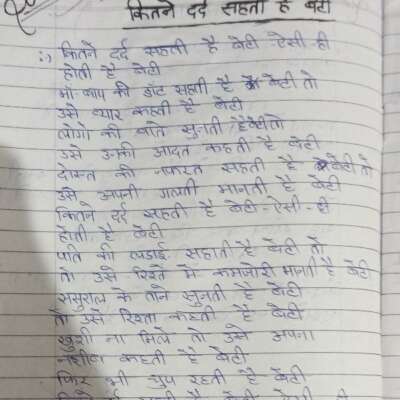 कितने दर्द सहती है बेटी
कितने दर्द सहती है बेटी ऐसी ही
होती है बेटी
माँ-बाप की डांट सहती है बेटी तो
उसे प्यार कहती है बेटी
लोगों की बाते सुनती है बेटी तो
उसे उनकी आदत कहती है बेटी
दोस्त की नफरत सहती है बेटी तो
उसे अपनी गलती मानती है बेटी
कितने दर्द सहती है बेटी-ऐसी-ही
होती है बेटी
पति की लडाई सहाती है बेटी तो
तो उसे रिश्ते मे कमजोरी मानती है बेटी
ससुराल के ताने सुनती है बेटी
तो उसे रिश्ता कहती है बेटी
खुशी ना मिले तो उसे अपना
नशीब कहती है बेटी
फिर भी चुप रहती है बेटी